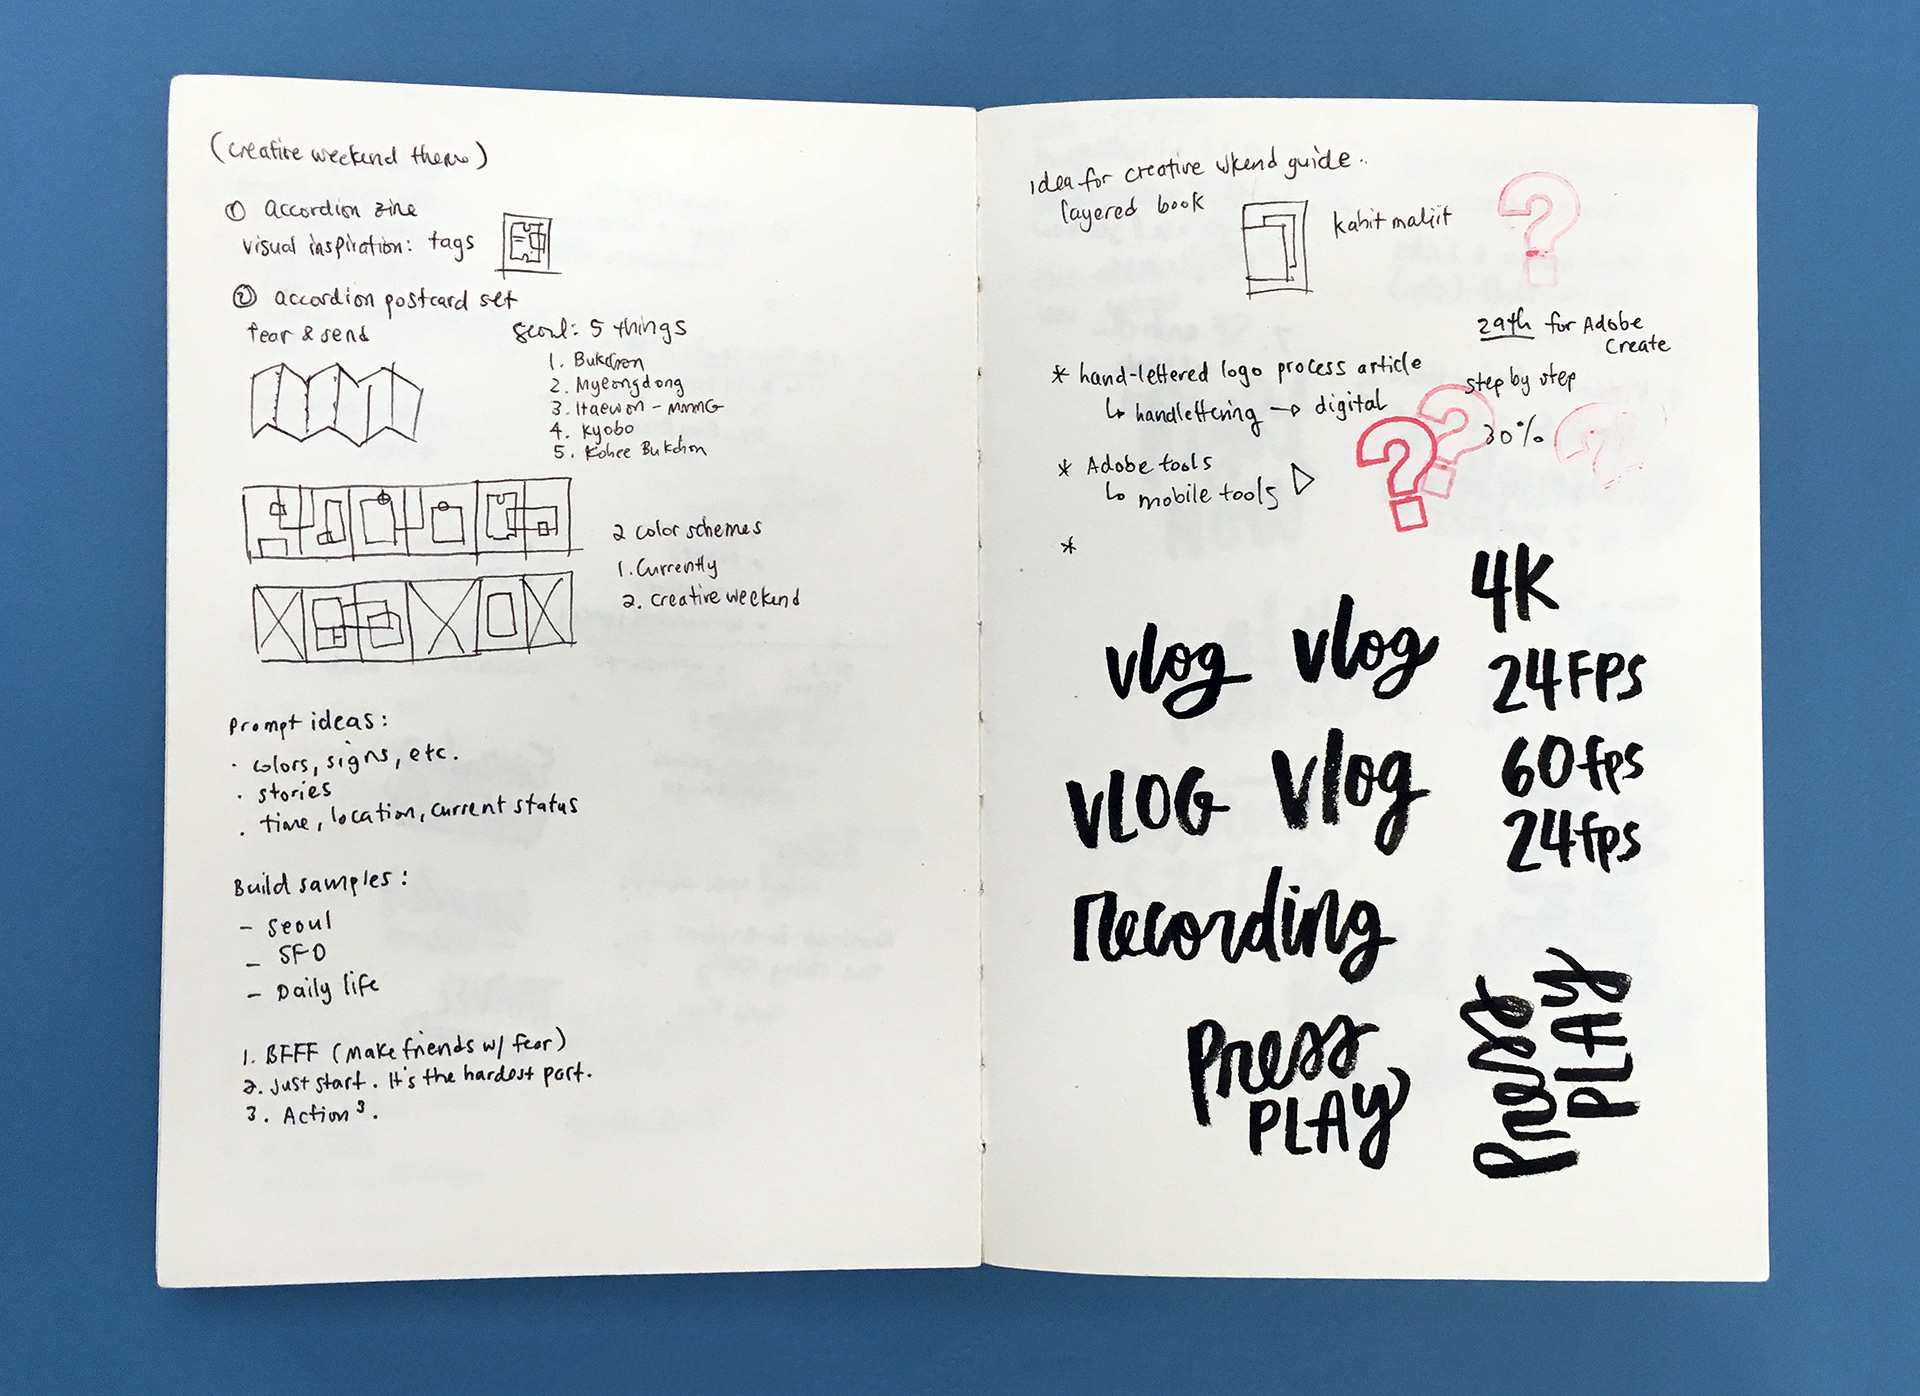 (creative weekend theme)
① accordion zine
visual inspiration: tags
② accordion postcard set
tear & send
Seoul: 5 things
1. Bukchon
2. Myeongdong
3. Itaewon - MMMG
4. Kyobo
5. Kohee Bukchon
2 color schemes
1. Currently
2. creative weekend
Prompt ideas:
· colors, signs, etc.
· stories
· time, location, current status
Build samples:
- Seoul
- SFO
- Daily life
1. BFFF (make friends w/ fear)
2. Just start. It's the hardest part.
3. Action³.
idea for creative wkend guide..
layered book
kahit maliit
?
29th for Adobe
Create
* hand-lettered logo process article
↳ handlettering → digital
step by step
30%
? ? ?
* Adobe tools
↳ mobile tools ▷
*
4K
24FPS
60fps
24fps
vlog vlog
VLOG vlog
recording
press
PLAY
press
PLAY